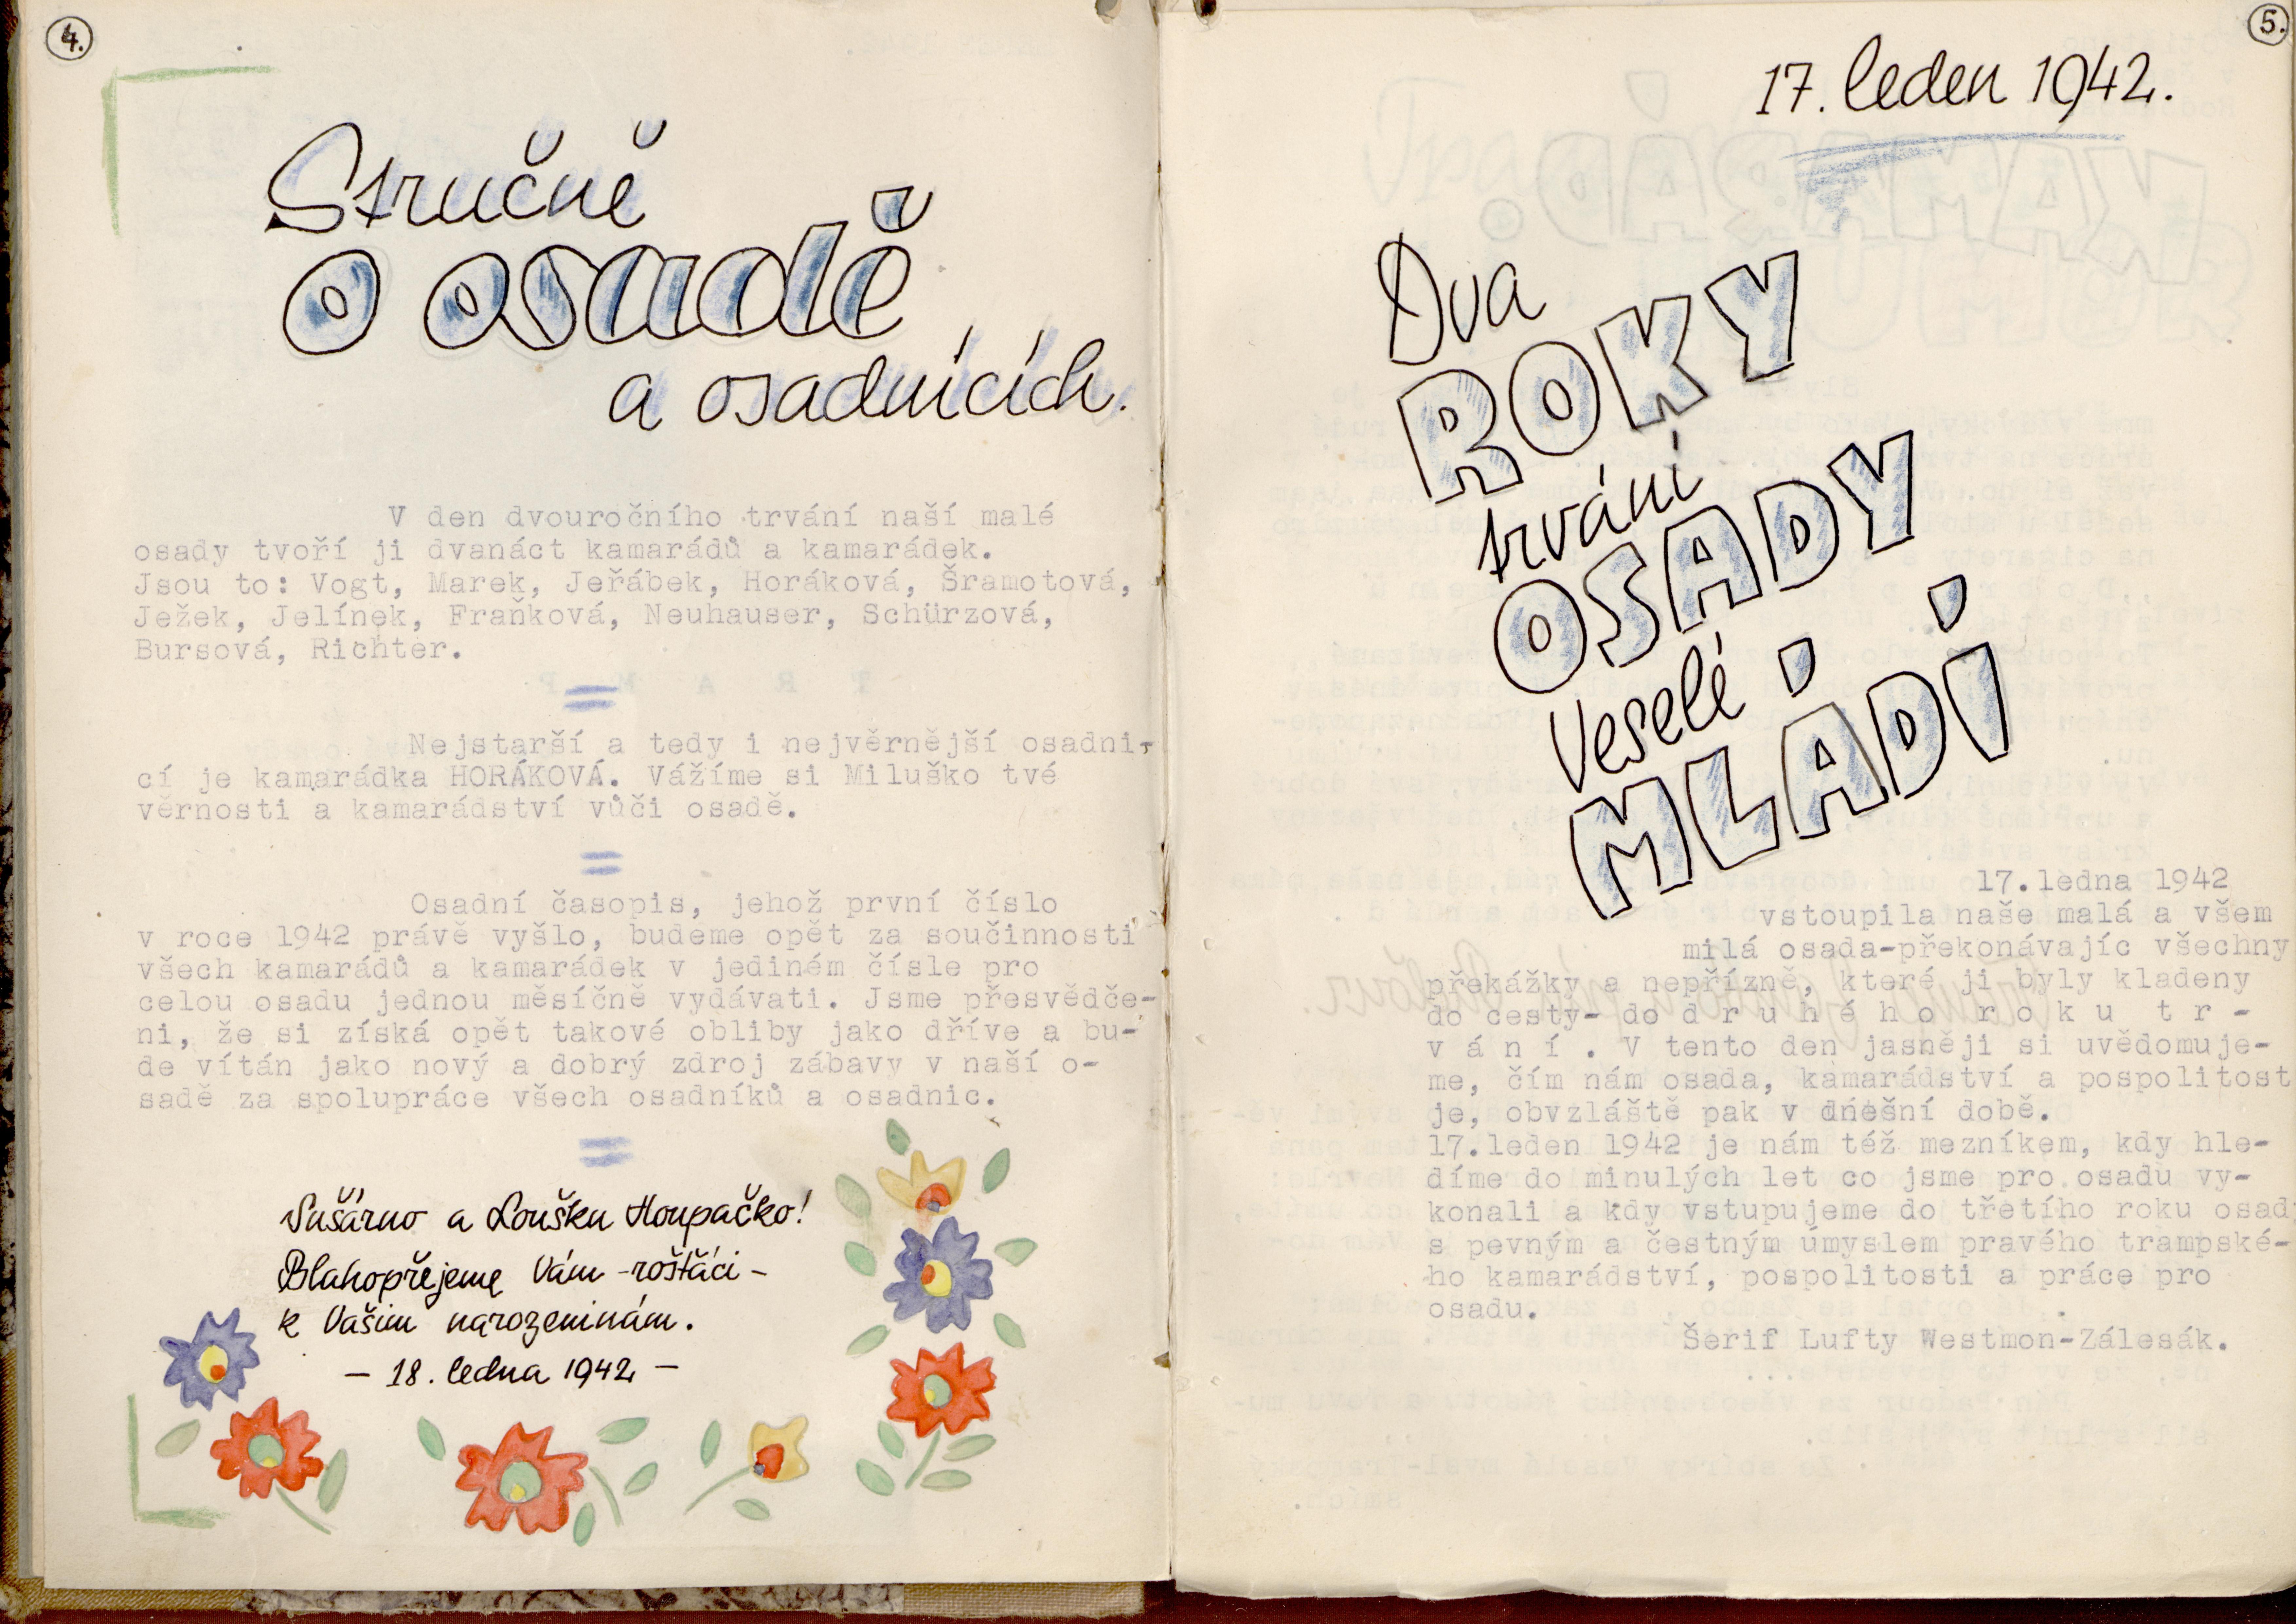 4.
Stručně
o osadě
a osadnících.
V den dvouročního trvání naší malé
osady tvoří ji dvanáct kamarádů a kamarádek.
Jsou to: Vogt, Marek, Jeřábek, Horáková, Šramotová,
Ježek, Jelínek, Fraňková, Neuhauser, Schürzová,
Bursová, Richter.
=
Nejstarší a tedy i nejvěrnější osadni-
cí je kamarádka HORÁKOVÁ. Vážíme si Miluško tvé
věrnosti a kamarádství vůči osadě.
=
Osadní časopis, jehož první číslo
v roce 1942 právě vyšlo, budeme opět za součinnosti
všech kamarádů a kamarádek v jediném čísle pro
celou osadu jednou měsíčně vydávati. Jsme přesvědče-
ni, že si získá opět takové obliby jako dříve a bu-
de vítán jako nový a dobrý zdroj zábavy v naší o-
sadě za spolupráce všech osadníků a osadnic.
=
Sušárno a Loušku Houpačko!
Blahopřejeme Vám -rošťáci-
k Vašim narozeninám.
- 18. ledna 1942 -
5.
17. leden 1942.
Dva
ROKY
trvání
OSADY
Veselé
MLÁDÍ
17.ledna 1942
vstoupila naše malá a všem
milá osada-překonávajíc všechny
překážky a nepřízně, které ji byly kladeny
do cesty- do d r u h é h o r o k u t r -
v á n í . V tento den jasněji si uvědomuje-
me, čím nám osada, kamarádství a pospolitost
je, obvzláště pak v dnešní době.
17.leden 1942 je nám též mezníkem, kdy hle-
díme do minulých let co jsme pro osadu vy-
konali a kdy vstupujeme do třetího roku osady
s pevným a čestným úmyslem pravého trampské-
ho kamarádství, pospolitosti a práce pro
osadu.
Šerif Lufty Westmon-Zálesák.